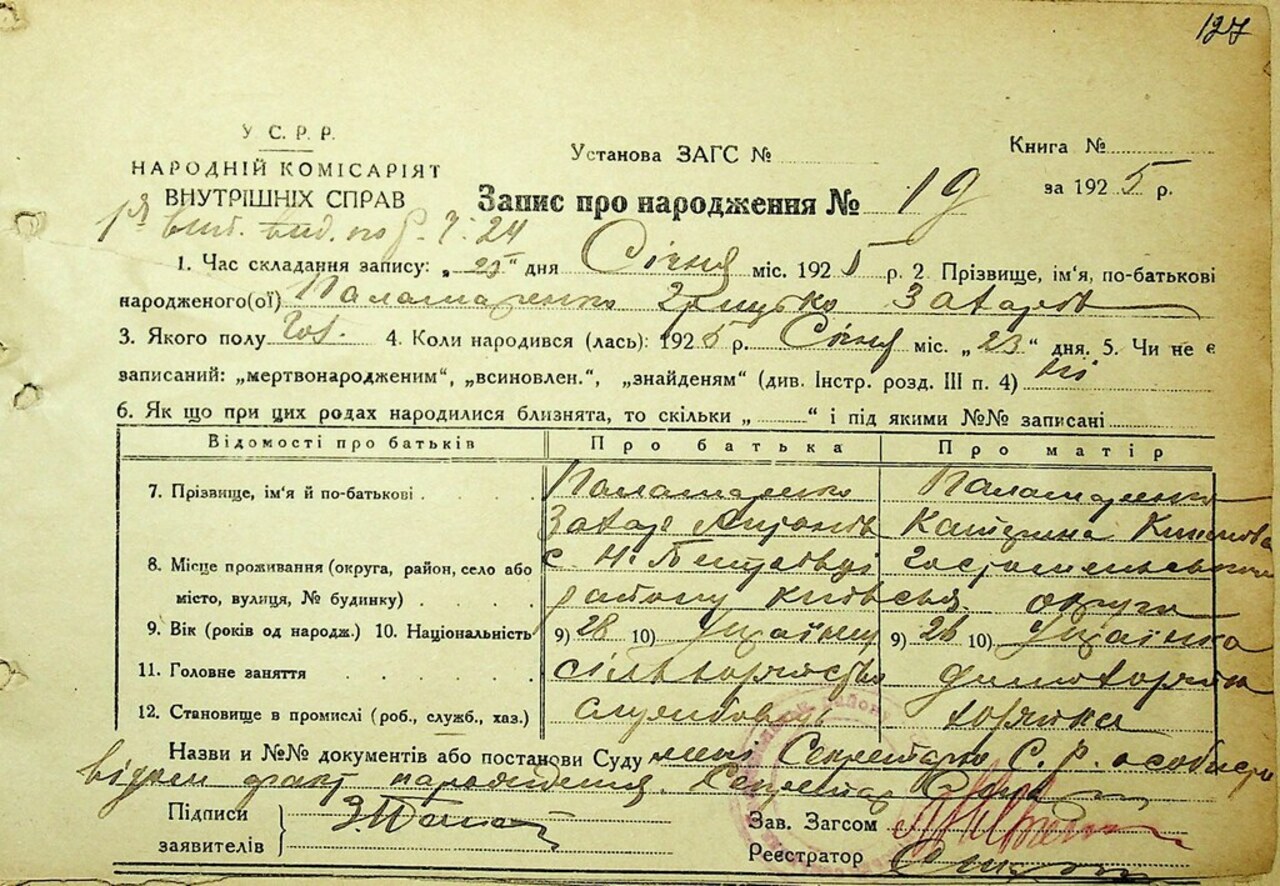 127
У С. Р. Р.
НАРОДНІЙ КОМІСАРІЯТ
ВНУТРІШНІХ СПРАВ
Установа ЗАГС №
Книга №
Запис про народження № 19 за 1925 р.
1. Час складання запису: „25“ дня Січня міс. 1925 р. 2 Прізвище, ім‘я, по-батькові
народженого(ої) Паламаренко Грицько Захарів
3. Якого полу чол. 4. Коли народився (лась): 1925 р. Січня міс. „23“ дня. 5. Чи не є
записаний: „мертвонародженим“, „всиновлен.“, „знайденям“ (див. Інстр. розд. III п. 4) ні
6. Як що при цих родах народилися близнята, то скільки „ “ і під якими №№ записані
Відомості про батьків Про батька Про матір
7. Прізвище, ім‘я й по-батькові Паламаренко Паламаренко
Захар Катерина
8. Місце проживання (округа, район, село або с. Н. Петрівці Гостомельського
місто, вулиця, № будинку) району Київськ. округи
9. Вік (років од народж.) 10. Національність 9) 28 10) Українц 9) 26 10) Українка
11. Головне заняття домохазяйка
12. Становище в промислі (роб., служб., хаз.) службовець хазяйка
Назви и №№ документів або постанови Суду мені Секретарю С. Р. особисто
відом факт народження. Секретар
Підписи
заявителів
Зав. Загсом
Реестратор